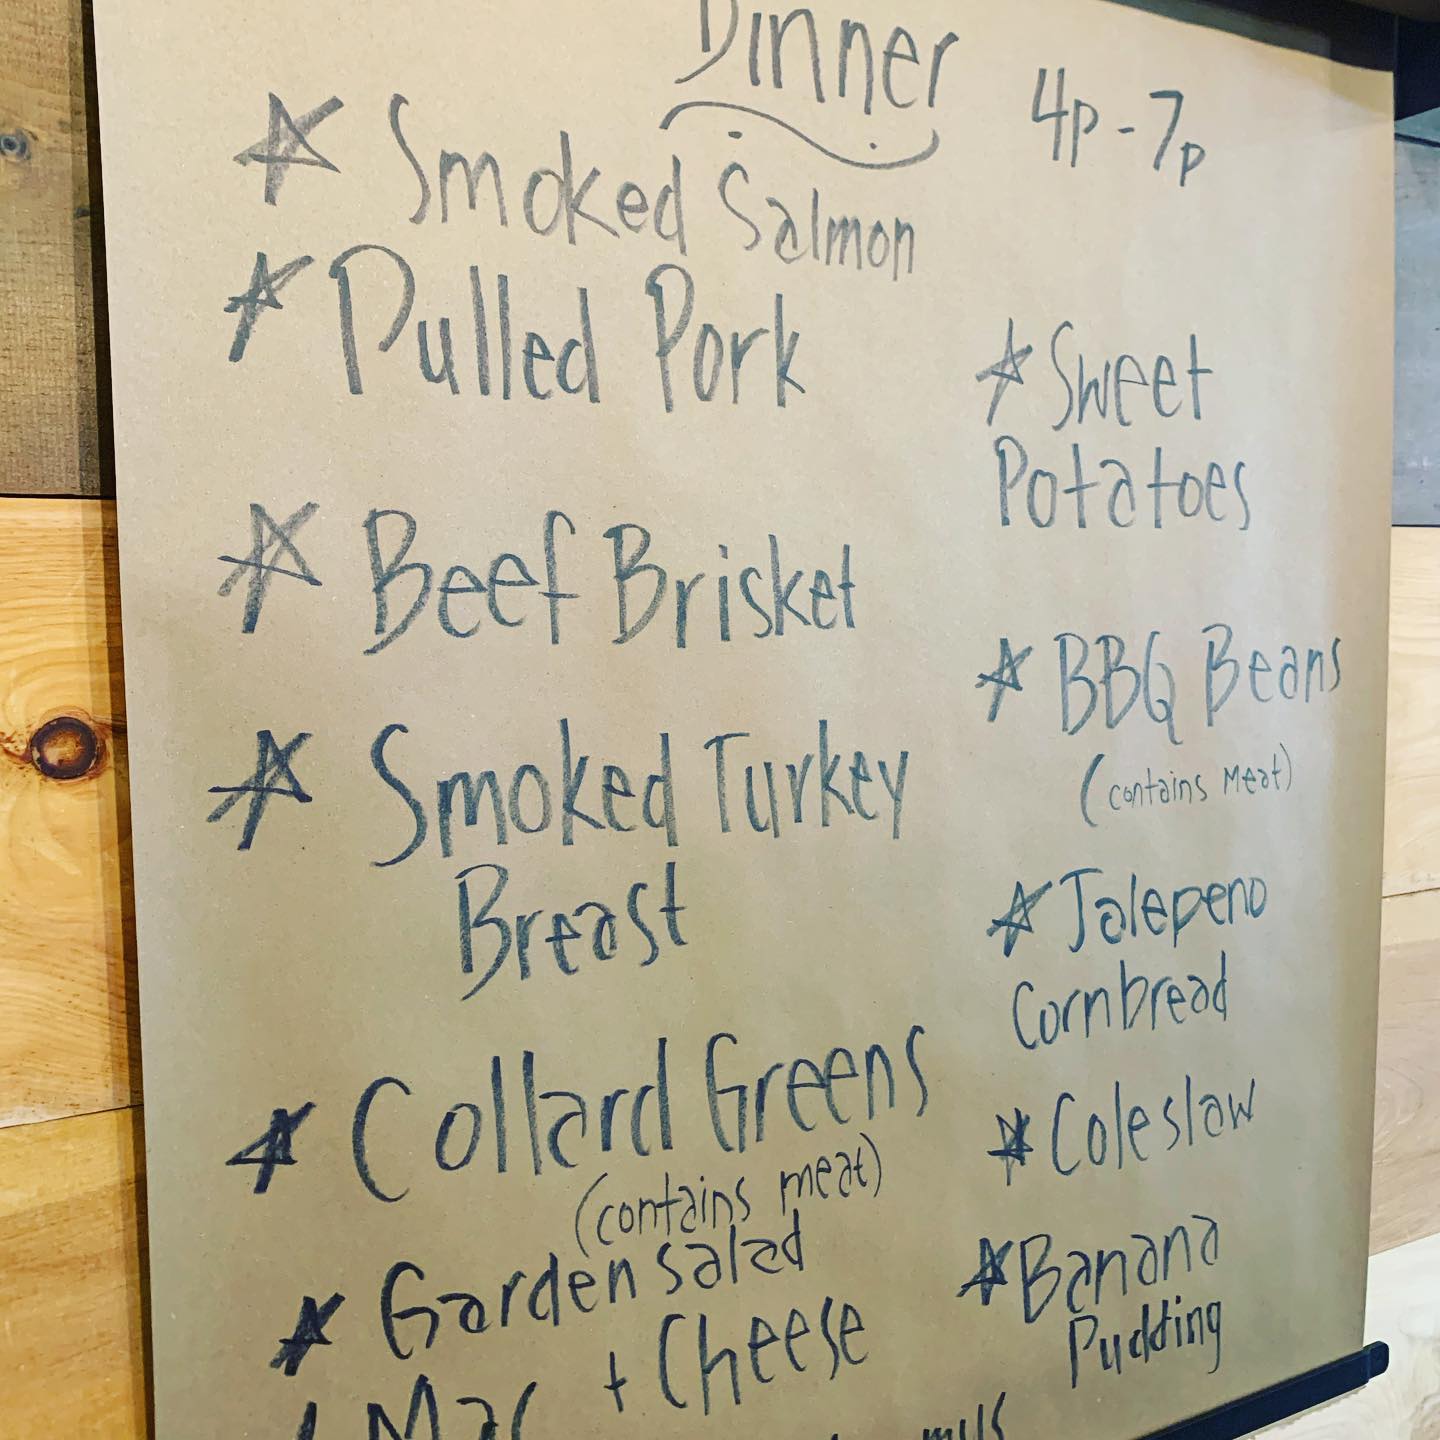 Dinner
4p - 7p
Smoked Salmon
Pulled Pork
Beef Brisket
Smoked Turkey
Breast
Collard Greens
(contains meat)
Garden salad
Mac + Cheese
Sweet
Potatoes
BBQ Beans
(contains meat)
Jalepeno
Cornbread
Coleslaw
Banana
Pudding